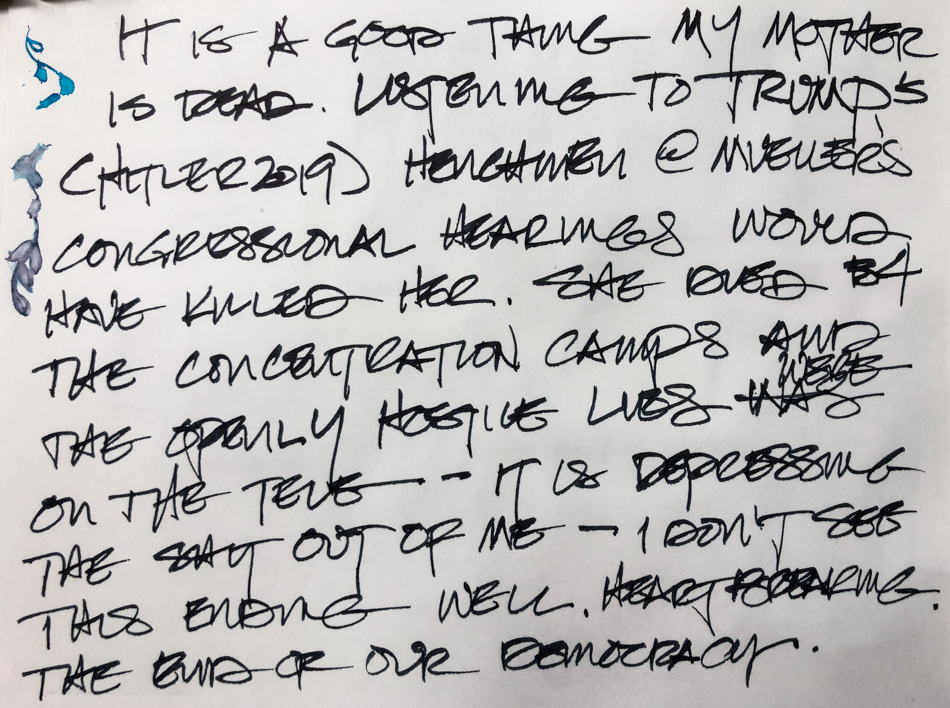 IT IS A GOOD THING MY MOTHER
IS DEAD. LISTENING TO TRUMP'S
(HITLER 2019) HENCHMEN @ MUELLER'S
CONGRESSIONAL HEARINGS WOULD
HAVE KILLED HER. SHE LIVED B4
THE CONCENTRATION CAMPS AND
THE OPENLY HOSTILE LIES WAS WERE
ON THE TELE -- IT IS DEPRESSING
THE SHIT OUT OF ME - I DON'T SEE
THIS ENDING WELL. HEARTBREAKING.
THE END OF OUR DEMOCRACY.